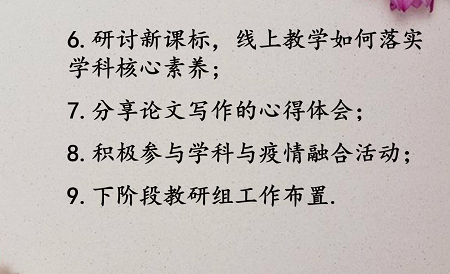 6.研讨新课标，线上教学如何落实
学科核心素养；
7.分享论文写作的心得体会；
8.积极参与学科与疫情融合活动；
9.下阶段教研组工作布置.